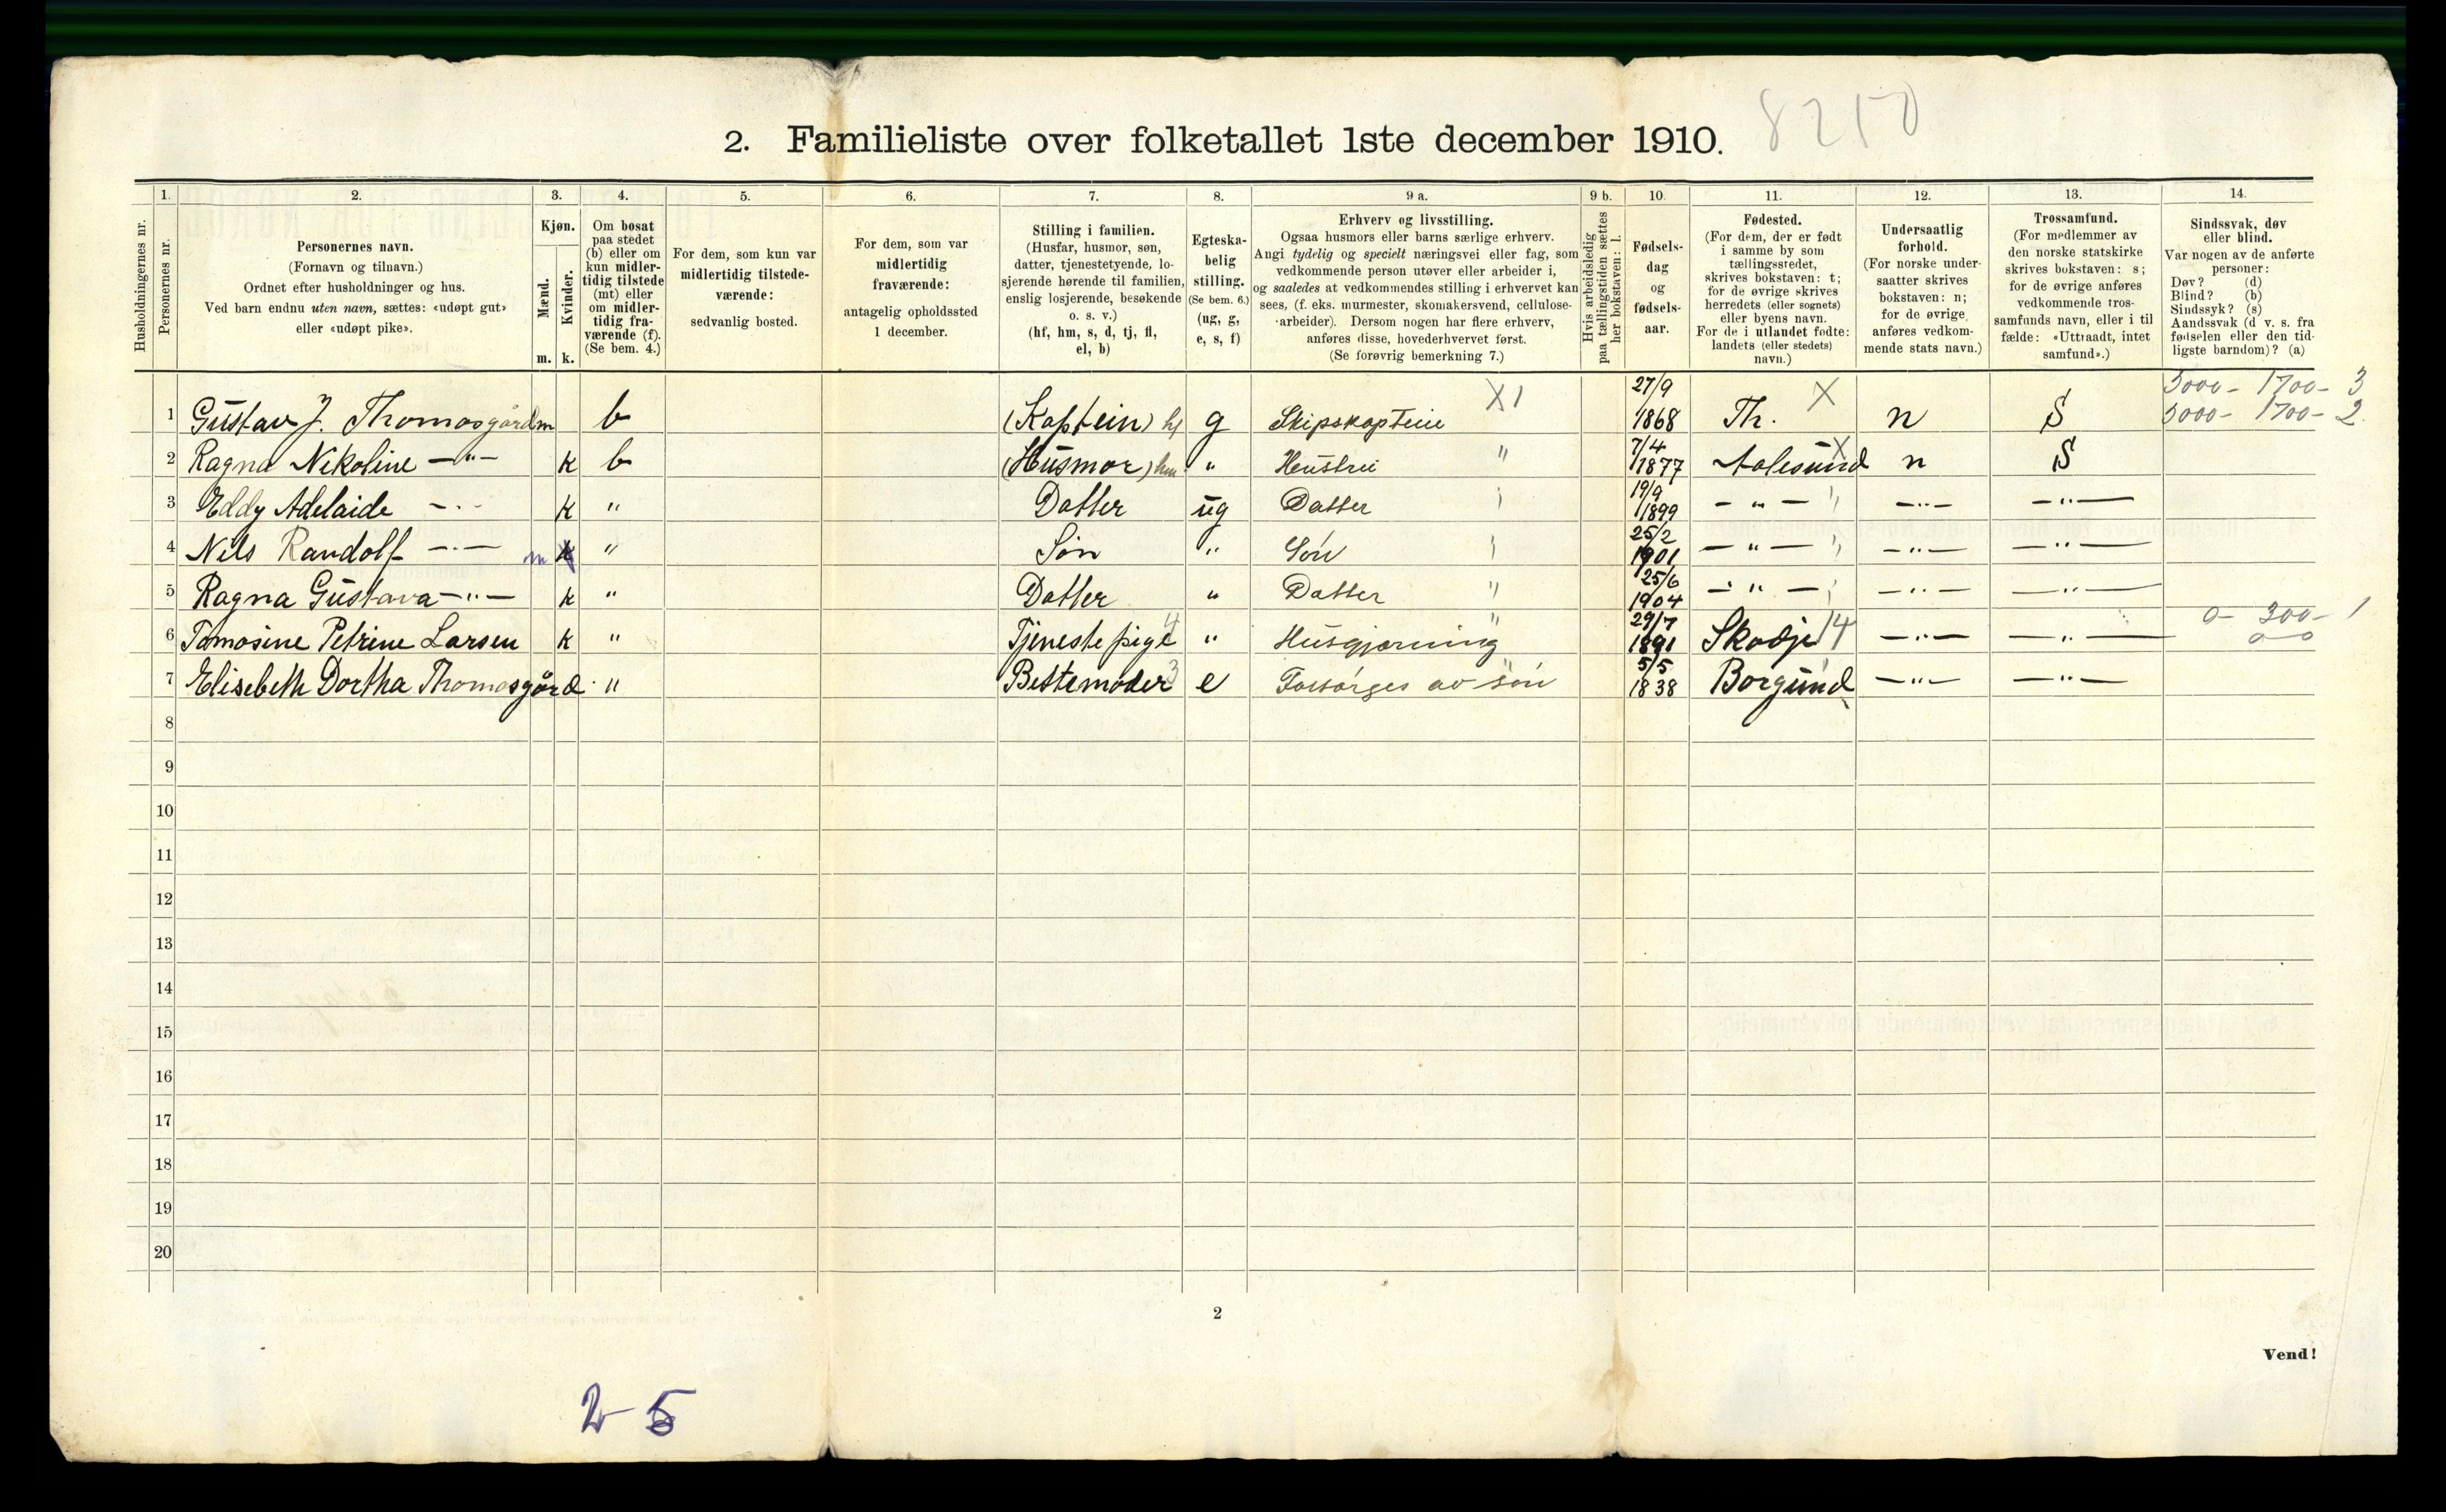 8210
2. Familieliste over folketallet 1ste december 1910.
1. 2. 3. 4. 5. 6. 7. 8. 9 a. 9 b. 10. 11. 12. 13. 14.
Husholdningernes nr.
Personernes nr.
Personernes navn.
(Fornavn og tilnavn.)
Ordnet efter husholdninger og hus.
Ved barn endnu uten navn, sættes: «udøpt gut»
eller «udøpt pike».
Kjøn.
Mænd.
Kvinder.
m. k.
Om bosat
paa stedet
(b) eller om
kun midler-
tidig tilstede
(mt) eller
om midler-
tidig fra-
værende (f).
(Se bem. 4.)
For dem, som kun var
midlertidig tilstede-
værende:
sedvanlig bosted.
For dem, som var
midlertidig
fraværende:
antagelig opholdssted
1 december.
Stilling i familien.
(Husfar, husmor, søn,
datter, tjenestetyende, lo-
sjerende hørende til familien,
enslig losjerende, besøkende
o. s. v.)
(hf, hm, s, d, tj, fl,
el, b)
Egteska-
belig
stilling.
(Se bem. 6.)
(ug, g,
e, s, f)
Erhverv og livsstilling.
Ogsaa husmors eller barns særlige erhverv.
Angi tydelig og specielt næringsvei eller fag, som
vedkommende person utøver eller arbeider i,
og saaledes at vedkommendes stilling i erhvervet kan
sees, (f. eks. murmester, skomakersvend, cellulose-
arbeider). Dersom nogen har flere erhverv,
anføres disse, hovederhvervet først.
(Se forøvrig bemerkning 7.)
Hvis arbeidsledig
paa tællingstiden sættes
her bokstaven: l.
Fødsels-
dag
og
fødsels-
aar.
Fødested.
(For dem, der er født
i samme by som
tællingsstedet,
skrives bokstaven: t;
for de øvrige skrives
herredets (eller sognets)
eller byens navn.
For de i utlandet fødte:
landets (eller stedets)
navn.)
Undersaatlig
forhold.
(For norske under-
saatter skrives
bokstaven: n;
for de øvrige
anføres vedkom-
mende stats navn.)
Trossamfund.
(For medlemmer av
den norske statskirke
skrives bokstaven: s;
for de øvrige anføres
vedkommende tros-
samfunds navn, eller i til
fælde: «Uttraadt, intet
samfund».)
Sindssvak, døv
eller blind.
Var nogen av de anførte
personer:
Døv? (d)
Blind? (b)
Sindssyk? (s)
Aandssvak (d v. s. fra
fødselen eller den tid-
ligste barndom)? (a)
1 Gustav J. Thomasgård m b (Kaptein) hf g Skipskaptein X 1 27/9 1868 Th. X n S 5000- 1700- 3
5000- 1700- 2
2 Ragna Nikoline —"— k b (Husmor) hm " Hustru " 7/4 1877 Aalesund X n S
3 Eddy Adelaide —"— k " Datter ug Datter 19/9 1899 —"— —"— —"—
4 Nils Randolf —"— m k " Søn " Søn 25/2 1901 —"— —"— —"—
5 Ragna Gustava —"— k " Datter " Datter " 25/6 1904 —"— —"— —"—
6 Tomosine Petrine Larsen k " Tjenestepige 4 " Husgjærning " 29/7 1891 Skodje 14 —"— —"— 0- 300- 1
0-0
7 Elisebeth Dortha Thomasgård " Bestemoder 3 e Forsørges av søn 5/5 1838 Borgund —"— —"—
8
9
10
11
12
13
14
15
16
17
18
19
20
2
Vend!
2-5